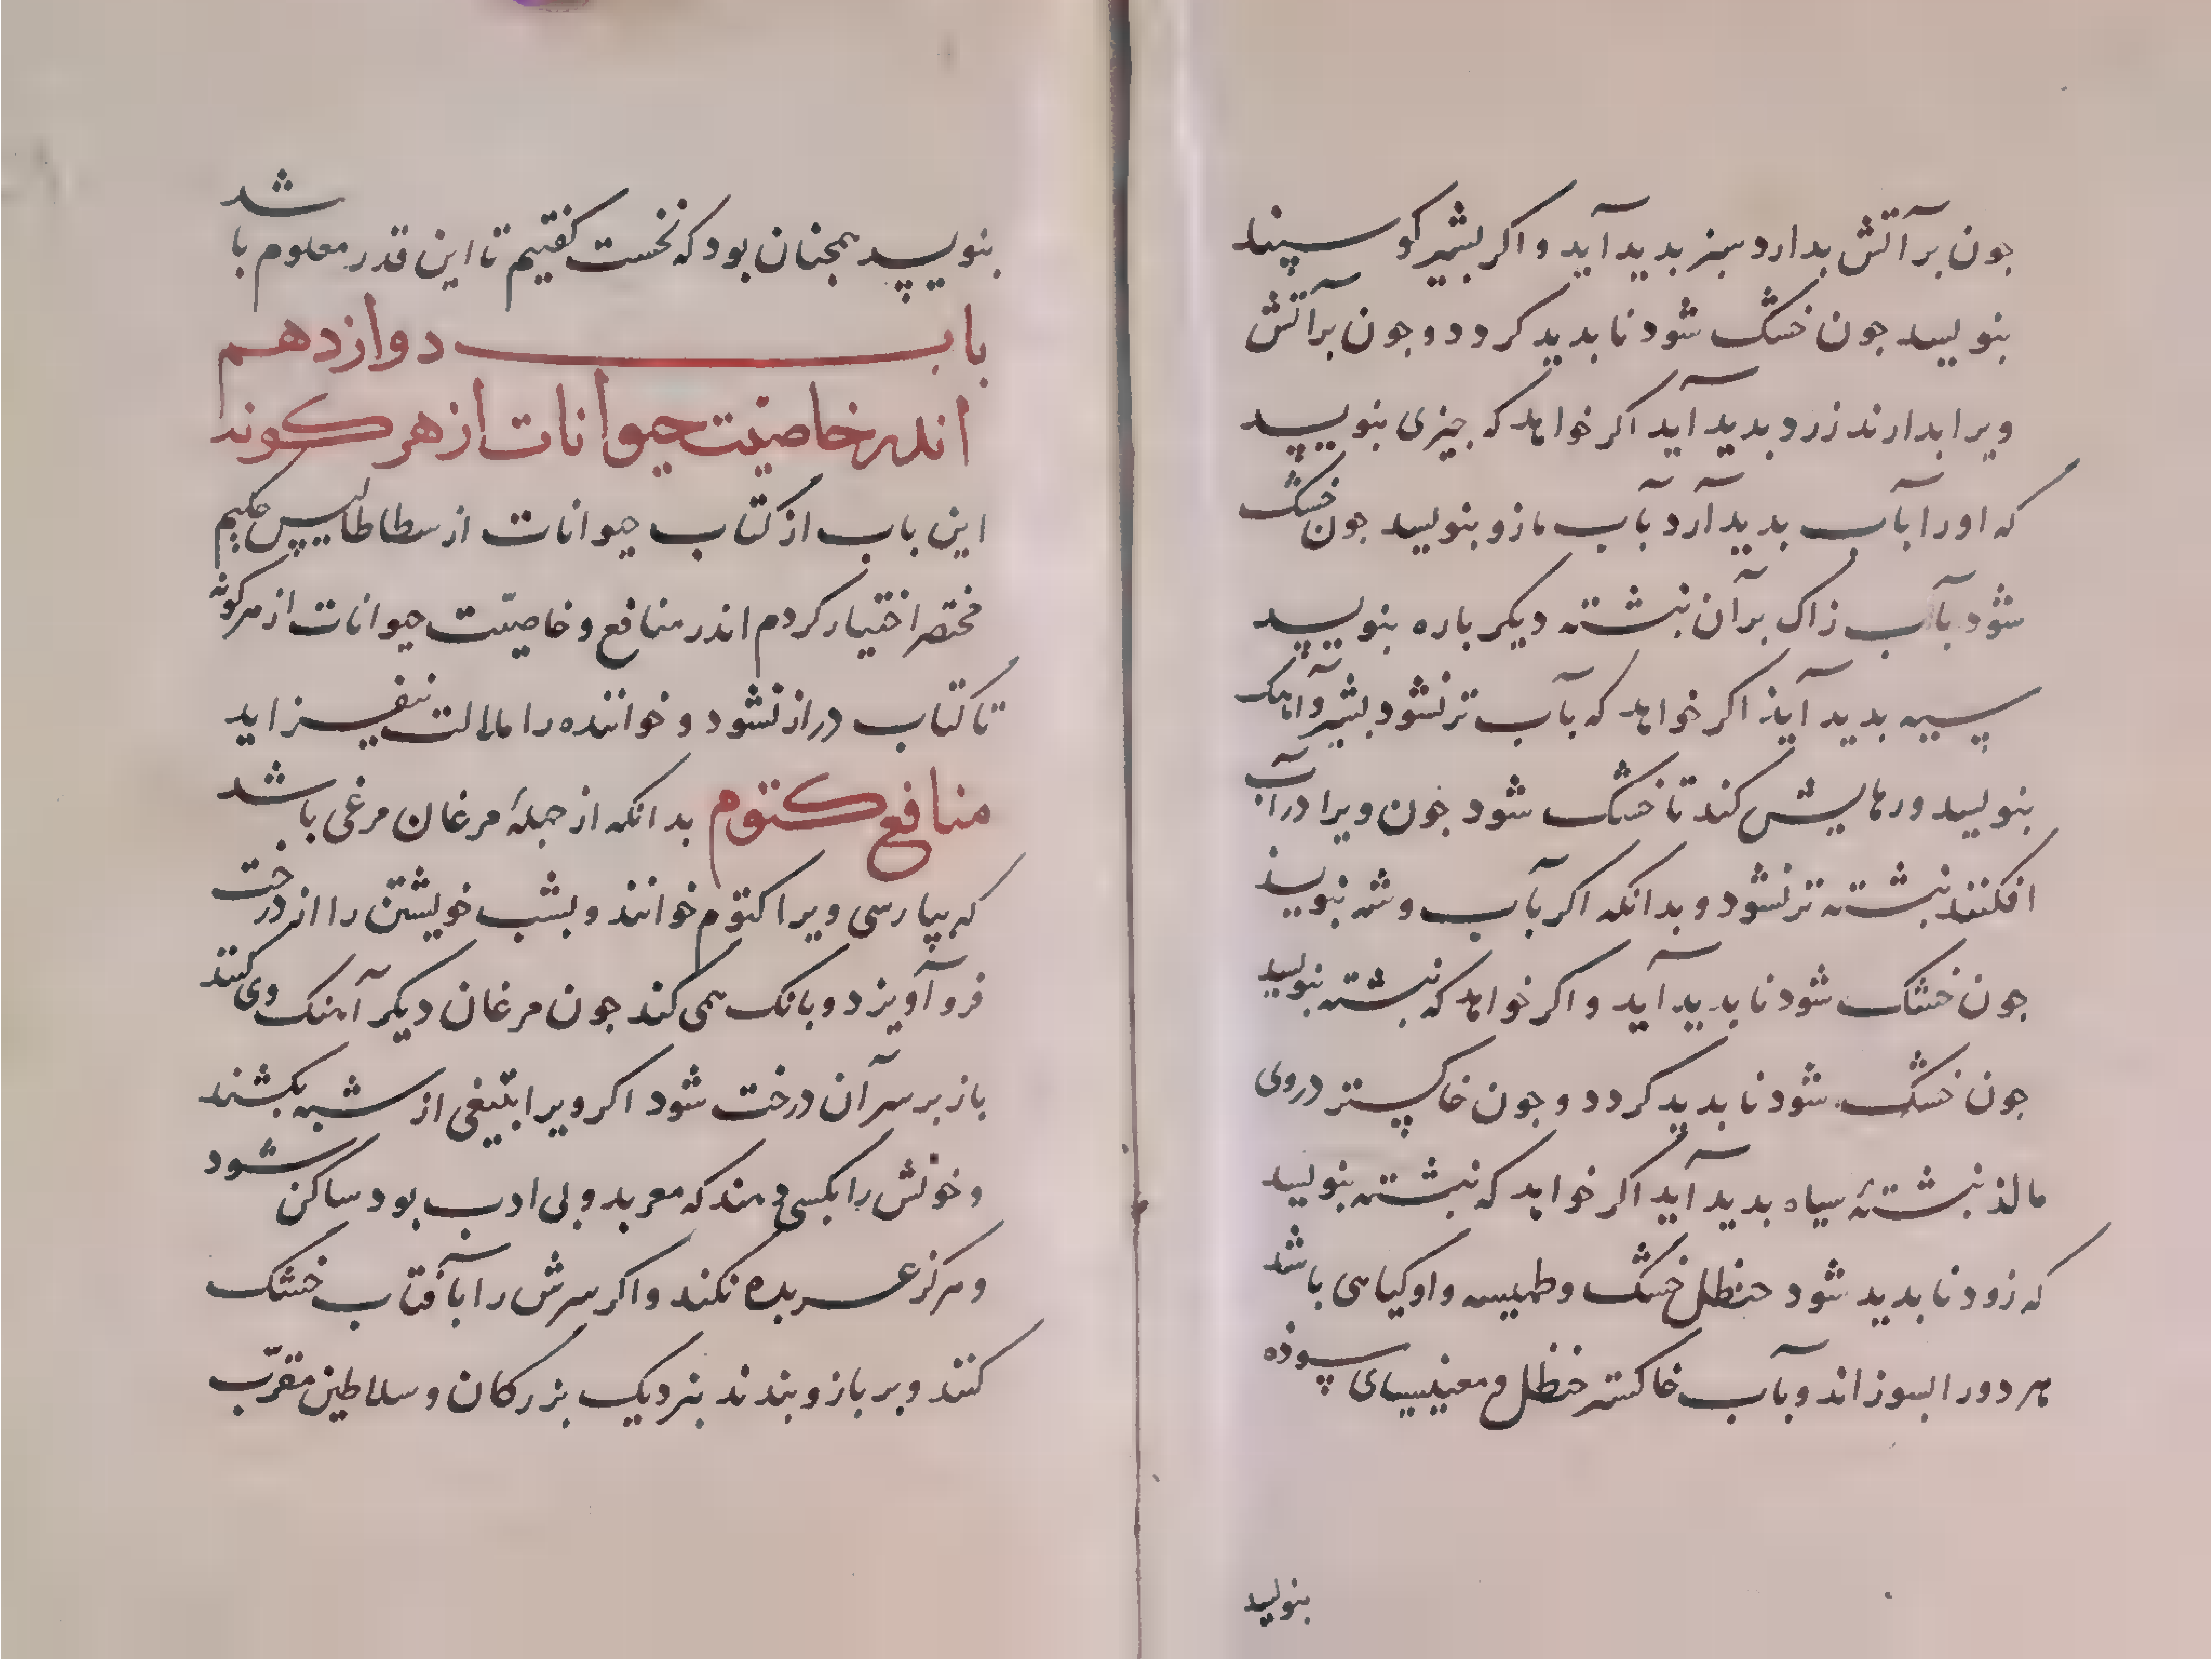 جون بر آتش بدارد سبز بدید آید و اکر بشیر کوسپند
بنویسد جون خشک شود نابدید کردد و جون بر آتش
ویرا بدارند زرد بدید آید اکر خواهد که جیزی بنویسد
که اورا بآب بدید آرد بآب مازو بنویسد جون خشک
شود بآب زاک بر آن نبشته دیکر باره بنویسد
سیه بدید آیذ اکر خواهد که بآب تر نشود بشیر و آهک
بنویسد و رهایش کند تا خشک شود جون ویرا در آب
افکنند نبشته تر نشود و بدانکه اکر بآب وشه بنویسذ
جون خشک شود نابدید آید و اکر خواهد که نبشته بنویسد
جون خشک شود نابدید کردد و جون خاکستر در وی
مالذ نبشتهٔ سیاه بدید آید اکر خواهد که نبشته بنویسد
که زود نابدید شود حنظل خشک و طهیسه و او کیاهی باشد
هر دو را بسوزاند و بآب خاکستر حنظل و مغنیسیای سوذه
بنویسد
بنویسد همجنان بود که نخست کفتیم تا این قدر معلوم باشد
باب دوازدهم
اندر خاصیت حیوانات از هر کونه
این باب از کتاب حیوانات ارسطاطالیس حکیم
مختصر اختیار کردم اندر منافع و خاصیّت حیوانات از هر کونه
تا کتاب دراز نشود و خواننده را ملالت نیفزاید
منافع کتوم بدانکه از جملهٔ مرغان مرغی باشد
که بپارسی ویرا کتوم خوانند و بشب خویشتن را از درخت
فرو آویزد و بانک همی کند جون مرغان دیکر آهنک وی کنند
باز بر سر آن درخت شود اکر ویرا بتیغی از شبه بکشند
و خونش را بکسی دهند که معربد و بی ادب بود ساکن شود
و هرکز عربده نکند و اکر سرش را بآفتاب خشک
کنند و بر بازو بندند بنزدیک بزرکان و سلاطین مقرّب